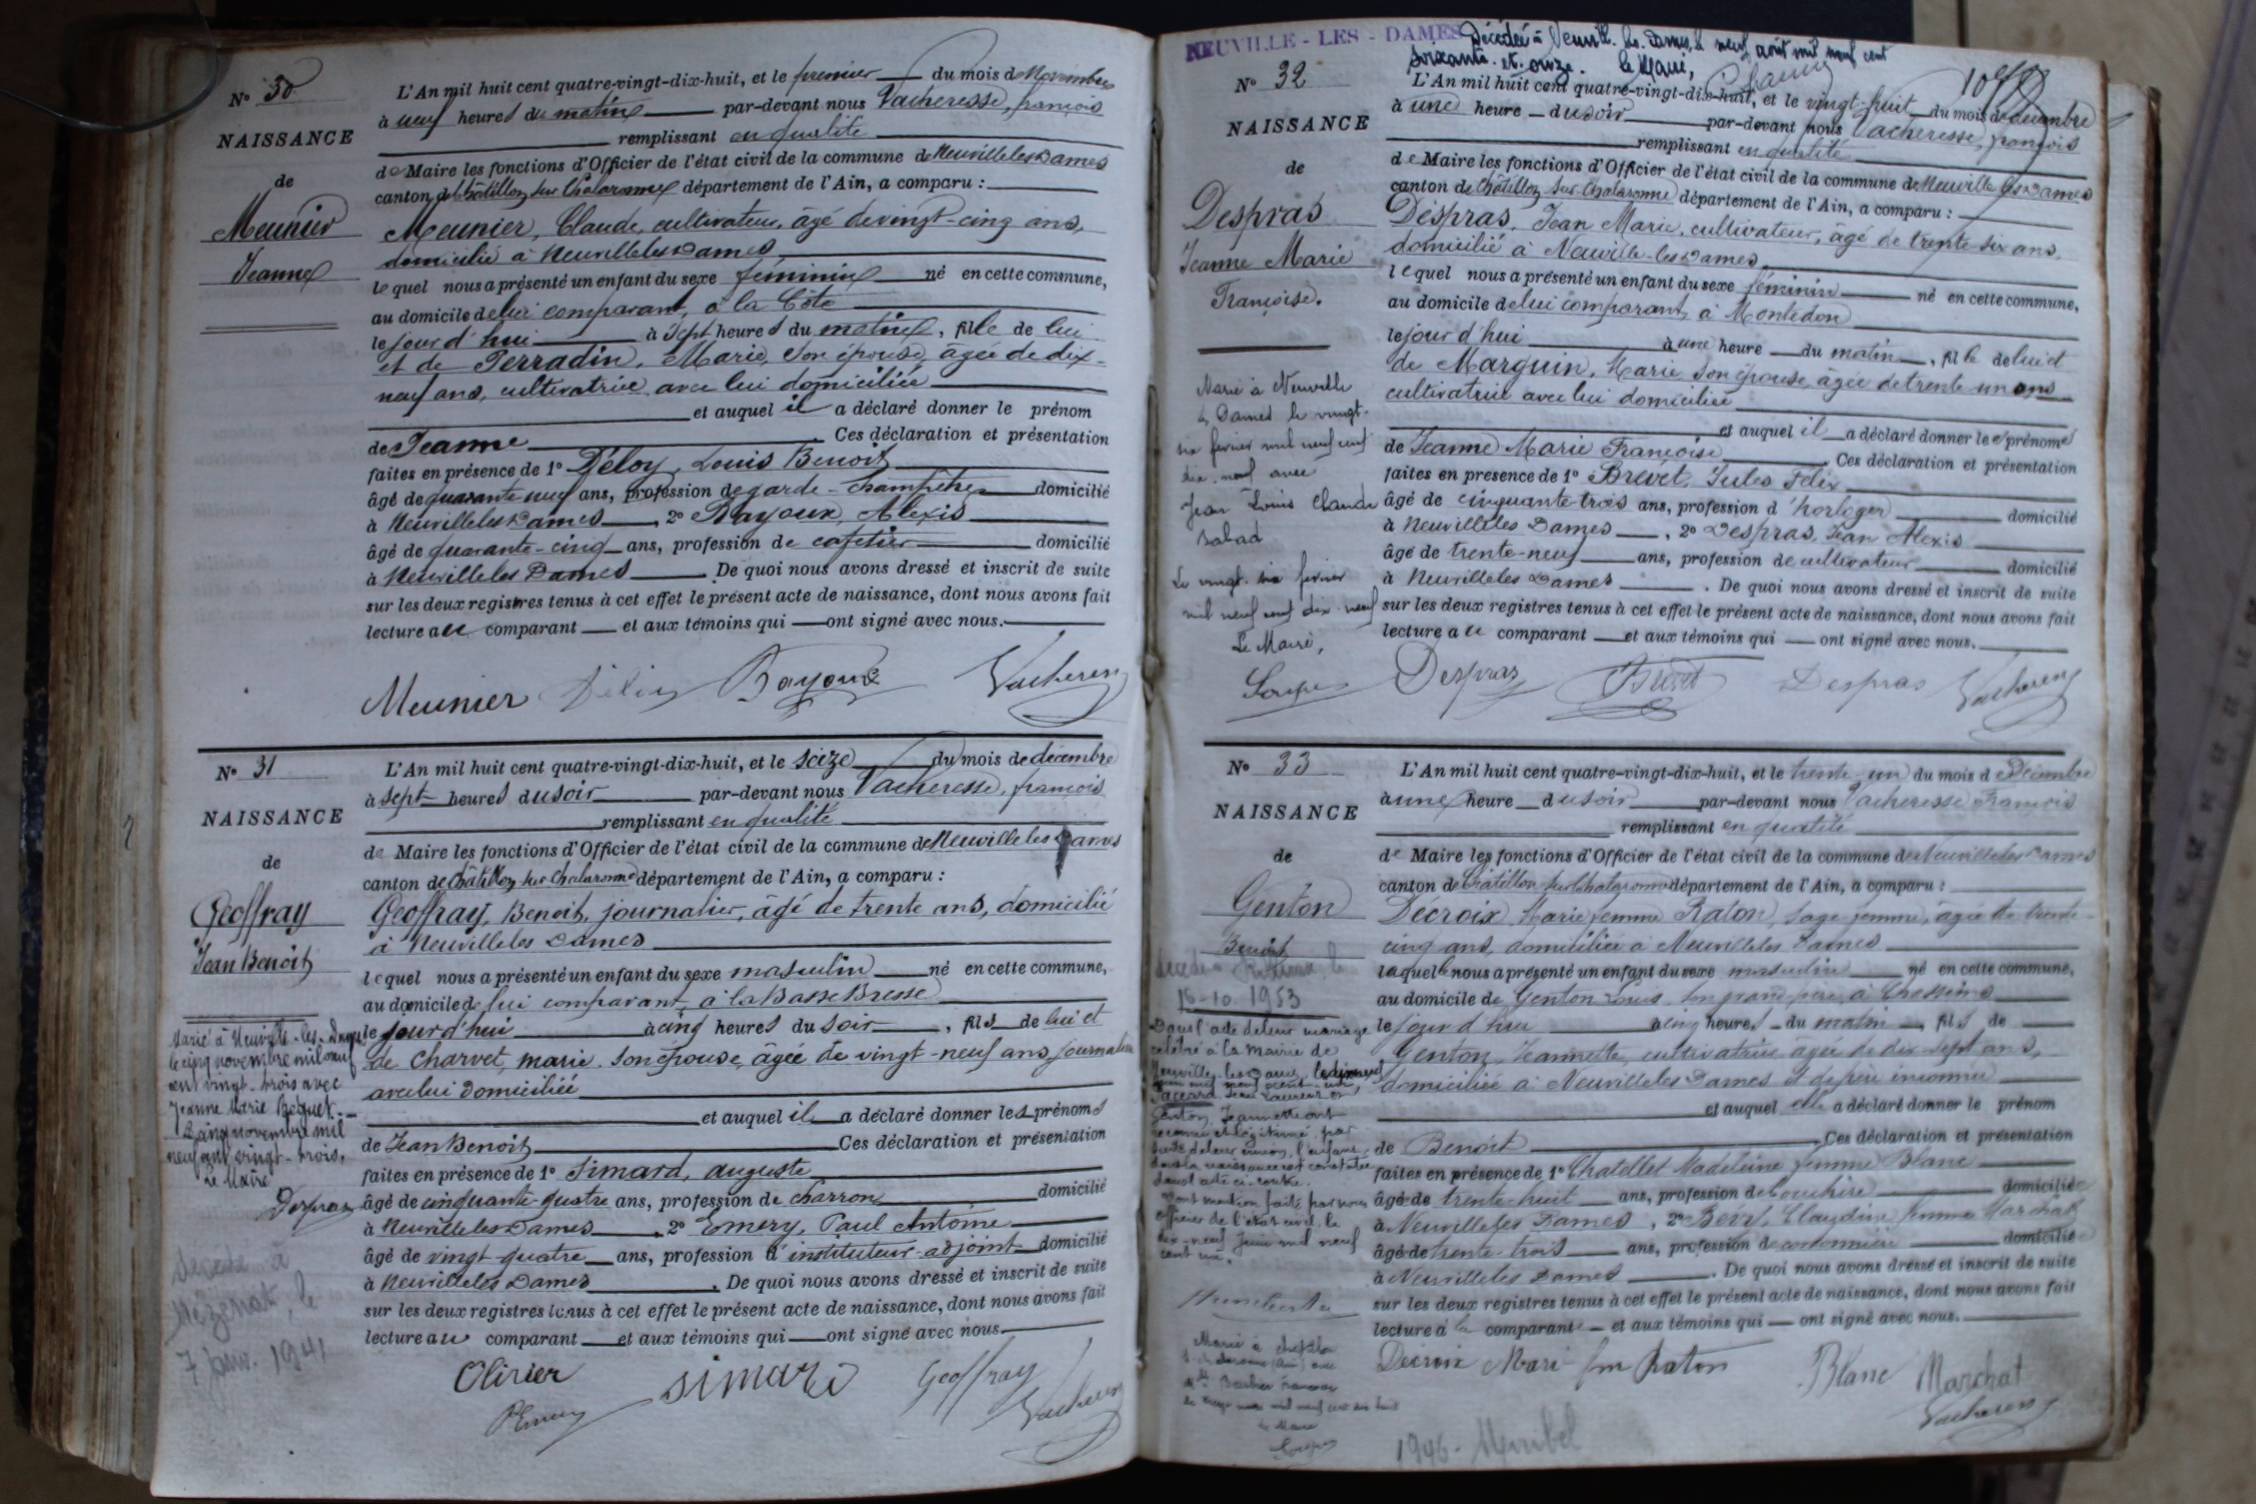 Nº 30
NAISSANCE
de
Meunier
Jeanne
L'An mil huit cent quatre-vingt-dix-huit, et le premier du mois de Novembre
à neuf heures du matin par-devant nous Vacheresse, françois
remplissant en qualité
de Maire les fonctions d'Officier de l'état civil de la commune de Neuville les Dames
canton de Châtillon sur Chalaronne département de l'Ain, a comparu :
Meunier, Claude, cultivateur, âgé de vingt-cinq ans,
domicilié à Neuville les Dames
lequel nous a présenté un enfant du sexe féminin né en cette commune,
au domicile de lui comparant, à la Côte
le jour d'hui à sept heures du matin, fille de lui
et de Perradin, Marie, son épouse, âgée de dix-
neuf ans, cultivatrice avec lui domiciliée
et auquel il a déclaré donner le prénom
de Jeanne Ces déclaration et présentation
faites en présence de 1º Déloy, Louis Benoit
âgé de quarante neuf ans, profession de garde-champêtre domicilié
à Neuville les Dames, 2º Bayoux, Alexis
âgé de quarante-cinq ans, profession de cafetier domicilié
à Neuville les Dames. De quoi nous avons dressé et inscrit de suite
sur les deux registres tenus à cet effet le présent acte de naissance, dont nous avons fait
lecture au comparant et aux témoins qui ont signé avec nous.
Meunier Bayoux Vacheresse
Nº 31
NAISSANCE
de
Geoffray
Jean Benoit
Marié à Neuville-les-Dames
le cinq novembre mil neuf
cent vingt-trois avec
Jeanne Marie
Le cinq novembre mil
neuf cent vingt-trois.
Le Maire
Despras
Décédé à
Mézériat, le
7 janv. 1941
L'An mil huit cent quatre-vingt-dix-huit, et le seize du mois de décembre
à sept heures du soir par-devant nous Vacheresse, françois
remplissant en qualité
de Maire les fonctions d'Officier de l'état civil de la commune de Neuville les Dames
canton de Châtillon sur Chalaronne département de l'Ain, a comparu :
Geoffray, Benoit, journalier, âgé de trente ans, domicilié
à Neuville les Dames
lequel nous a présenté un enfant du sexe masculin né en cette commune,
au domicile de lui comparant, à la Basse Bresse
le jour d'hui à cinq heures du soir, fils de lui et
de Charvet, marie, son épouse, âgée de vingt-neuf ans, journalière
avec lui domiciliée
et auquel il a déclaré donner les prénoms
de Jean Benoit Ces déclaration et présentation
faites en présence de 1º Simard, auguste
âgé de cinquante-quatre ans, profession de charron domicilié
à Neuville les Dames, 2º Emery, Paul Antoine
âgé de vingt-quatre ans, profession d'instituteur-adjoint domicilié
à Neuville les Dames. De quoi nous avons dressé et inscrit de suite
sur les deux registres tenus à cet effet le présent acte de naissance, dont nous avons fait
lecture au comparant et aux témoins qui ont signé avec nous.
Olivier simard Geoffray
PEmery Vacheresse
NEUVILLE-LES-DAMES
Décédée à Neuville-les-Dames, le neuf août mil neuf cent
soixante-et-onze. Le Maire,
Nº 32
NAISSANCE
de
Despras
Jeanne Marie
Françoise.
Marié à Neuville
les Dames le vingt-
six février mil neuf cent
dix-neuf avec
Jean Louis Claude
Balad
Le vingt-six février
mil neuf cent dix-neuf
Le Maire,
L'An mil huit cent quatre-vingt-dix-huit, et le vingt-huit du mois de décembre
à une heure du soir par-devant nous Vacheresse, françois
remplissant en qualité
de Maire les fonctions d'Officier de l'état civil de la commune de Neuville les Dames
canton de Châtillon sur Chalaronne département de l'Ain, a comparu :
Despras, Jean Marie, cultivateur, âgé de trente-six ans,
domicilié à Neuville-les-Dames
lequel nous a présenté un enfant du sexe féminin né en cette commune,
au domicile de lui comparant, à Montédon
le jour d'hui à une heure du matin, fille de lui et
de Marguin, Marie son épouse, âgée de trente un ans
cultivatrice avec lui domiciliée
et auquel il a déclaré donner les prénoms
de Jeanne Marie Françoise Ces déclaration et présentation
faites en présence de 1º Brevet, Jules Félix
âgé de cinquante-trois ans, profession d'horloger domicilié
à Neuville les Dames, 2º Despras, Jean Alexis
âgé de trente-neuf ans, profession de cultivateur domicilié
à Neuville les Dames. De quoi nous avons dressé et inscrit de suite
sur les deux registres tenus à cet effet le présent acte de naissance, dont nous avons fait
lecture au comparant et aux témoins qui ont signé avec nous.
Despras Brevet Despras Vacheresse
Nº 33
NAISSANCE
de
Genton
Benoit
16-10-1953
Dans l'acte de leur mariage
célébré à la mairie de
Neuville-les-Dames,
Genton, Jeannette ont
reconnu et légitimé par
dont mention faite par nous
officier de l'état civil le
dix-neuf Juin mil neuf
cent un.
L'An mil huit cent quatre-vingt-dix-huit, et le trente-un du mois de Décembre
à une heure du soir par-devant nous Vacheresse François
remplissant en qualité
de Maire les fonctions d'Officier de l'état civil de la commune de Neuville les Dames
canton de Châtillon sur Chalaronne département de l'Ain, a comparu :
Décroix, Marie femme Raton, sage femme, âgée de trente-
cinq ans, domiciliée à Neuville les Dames
laquelle nous a présenté un enfant du sexe masculin né en cette commune,
au domicile de Genton Louis, son grand-père, à
le jour d'hui à cinq heures du matin, fils de
Genton, Jeannette, cultivatrice âgée de dix-sept ans,
domiciliée à Neuville les Dames et de père inconnu
et auquel elle a déclaré donner le prénom
de Benoit Ces déclaration et présentation
faites en présence de 1º Chatellet Madeleine femme Blanc
âgé de trente-huit ans, profession de bouchère domiciliée
à Neuville les Dames, 2º Claudine femme Marchat
âgé de trente-trois ans, profession de cordonnière domiciliée
à Neuville les Dames. De quoi nous avons dressé et inscrit de suite
sur les deux registres tenus à cet effet le présent acte de naissance, dont nous avons fait
lecture à la comparante et aux témoins qui ont signé avec nous.
Décroix Mari fm Raton Blanc Marchat
Vacheresse
1946 - Miribel